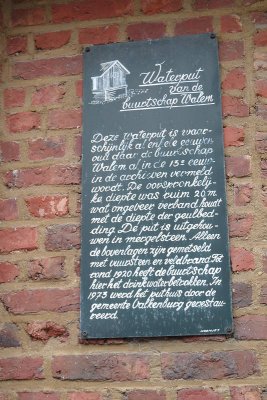 Waterput
van de
buurtschap Walem
Deze Waterput is waar-
schijnlijk al enige eeuwen
oud daar de buurtschap
Walem al in de 13e eeuw
in de archieven vermeld
wordt. De oorspronkelij-
ke diepte was ruim 20 m
wat ongeveer verband houdt
met de diepte der geulbed-
ding. De put is uitgehou-
wen in mergelsteen. Alleen
de bovenlagen zijn gemetseld
met vuursteen en veldbrand. Tot
rond 1920 heeft de buurtschap
hier het drinkwater betrokken. In
1973 werd het puthuis door de
gemeente Valkenburg gerestau-
reerd.